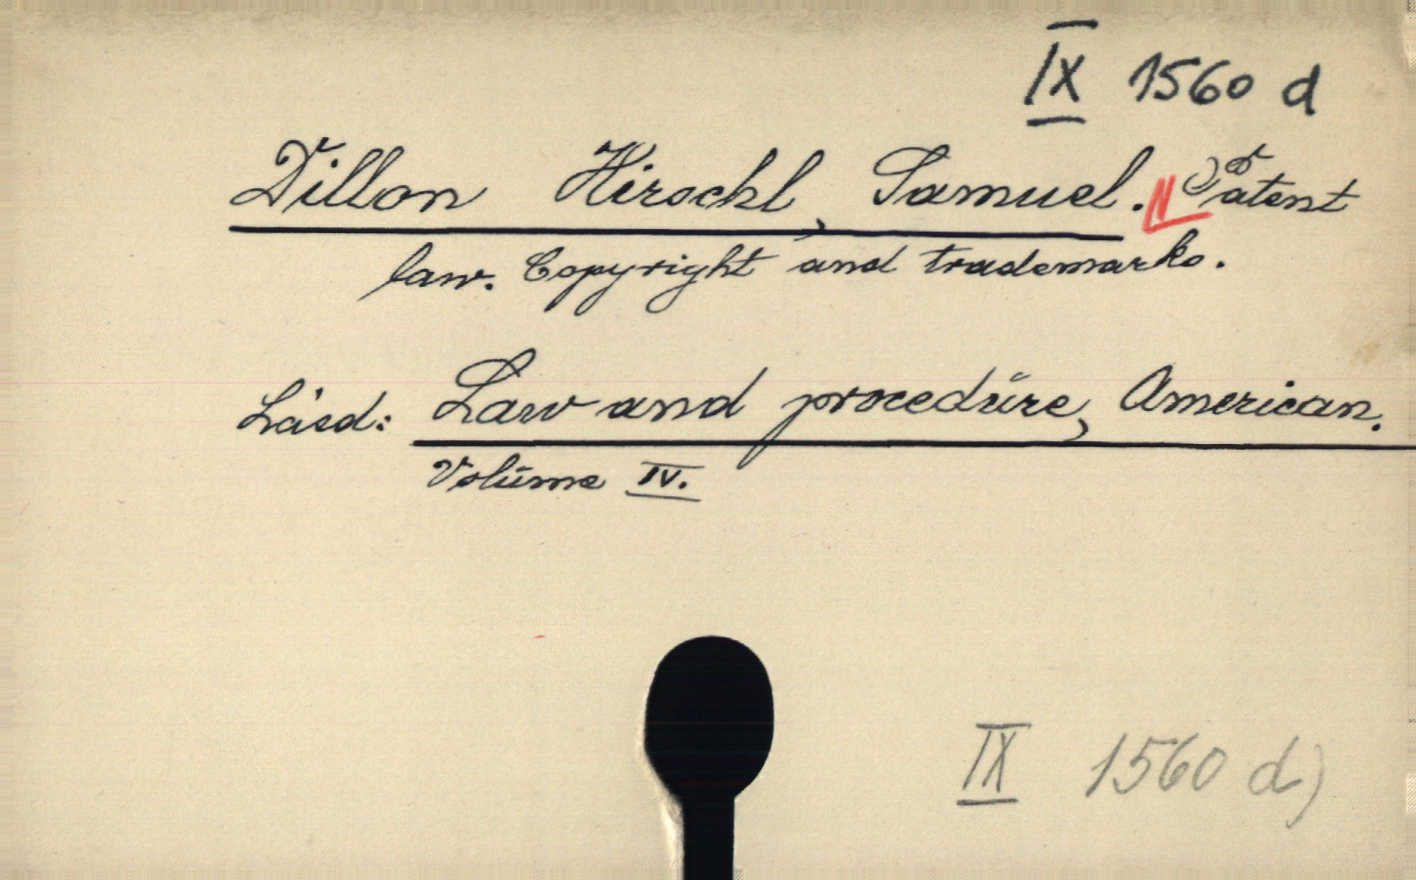 IX 1560 d
Dillon Hirschl, Samuel. Patent
law. Copyright and trademarks.
Lásd: Law and procedure, American.
Volume IV.
IX 1560 d)